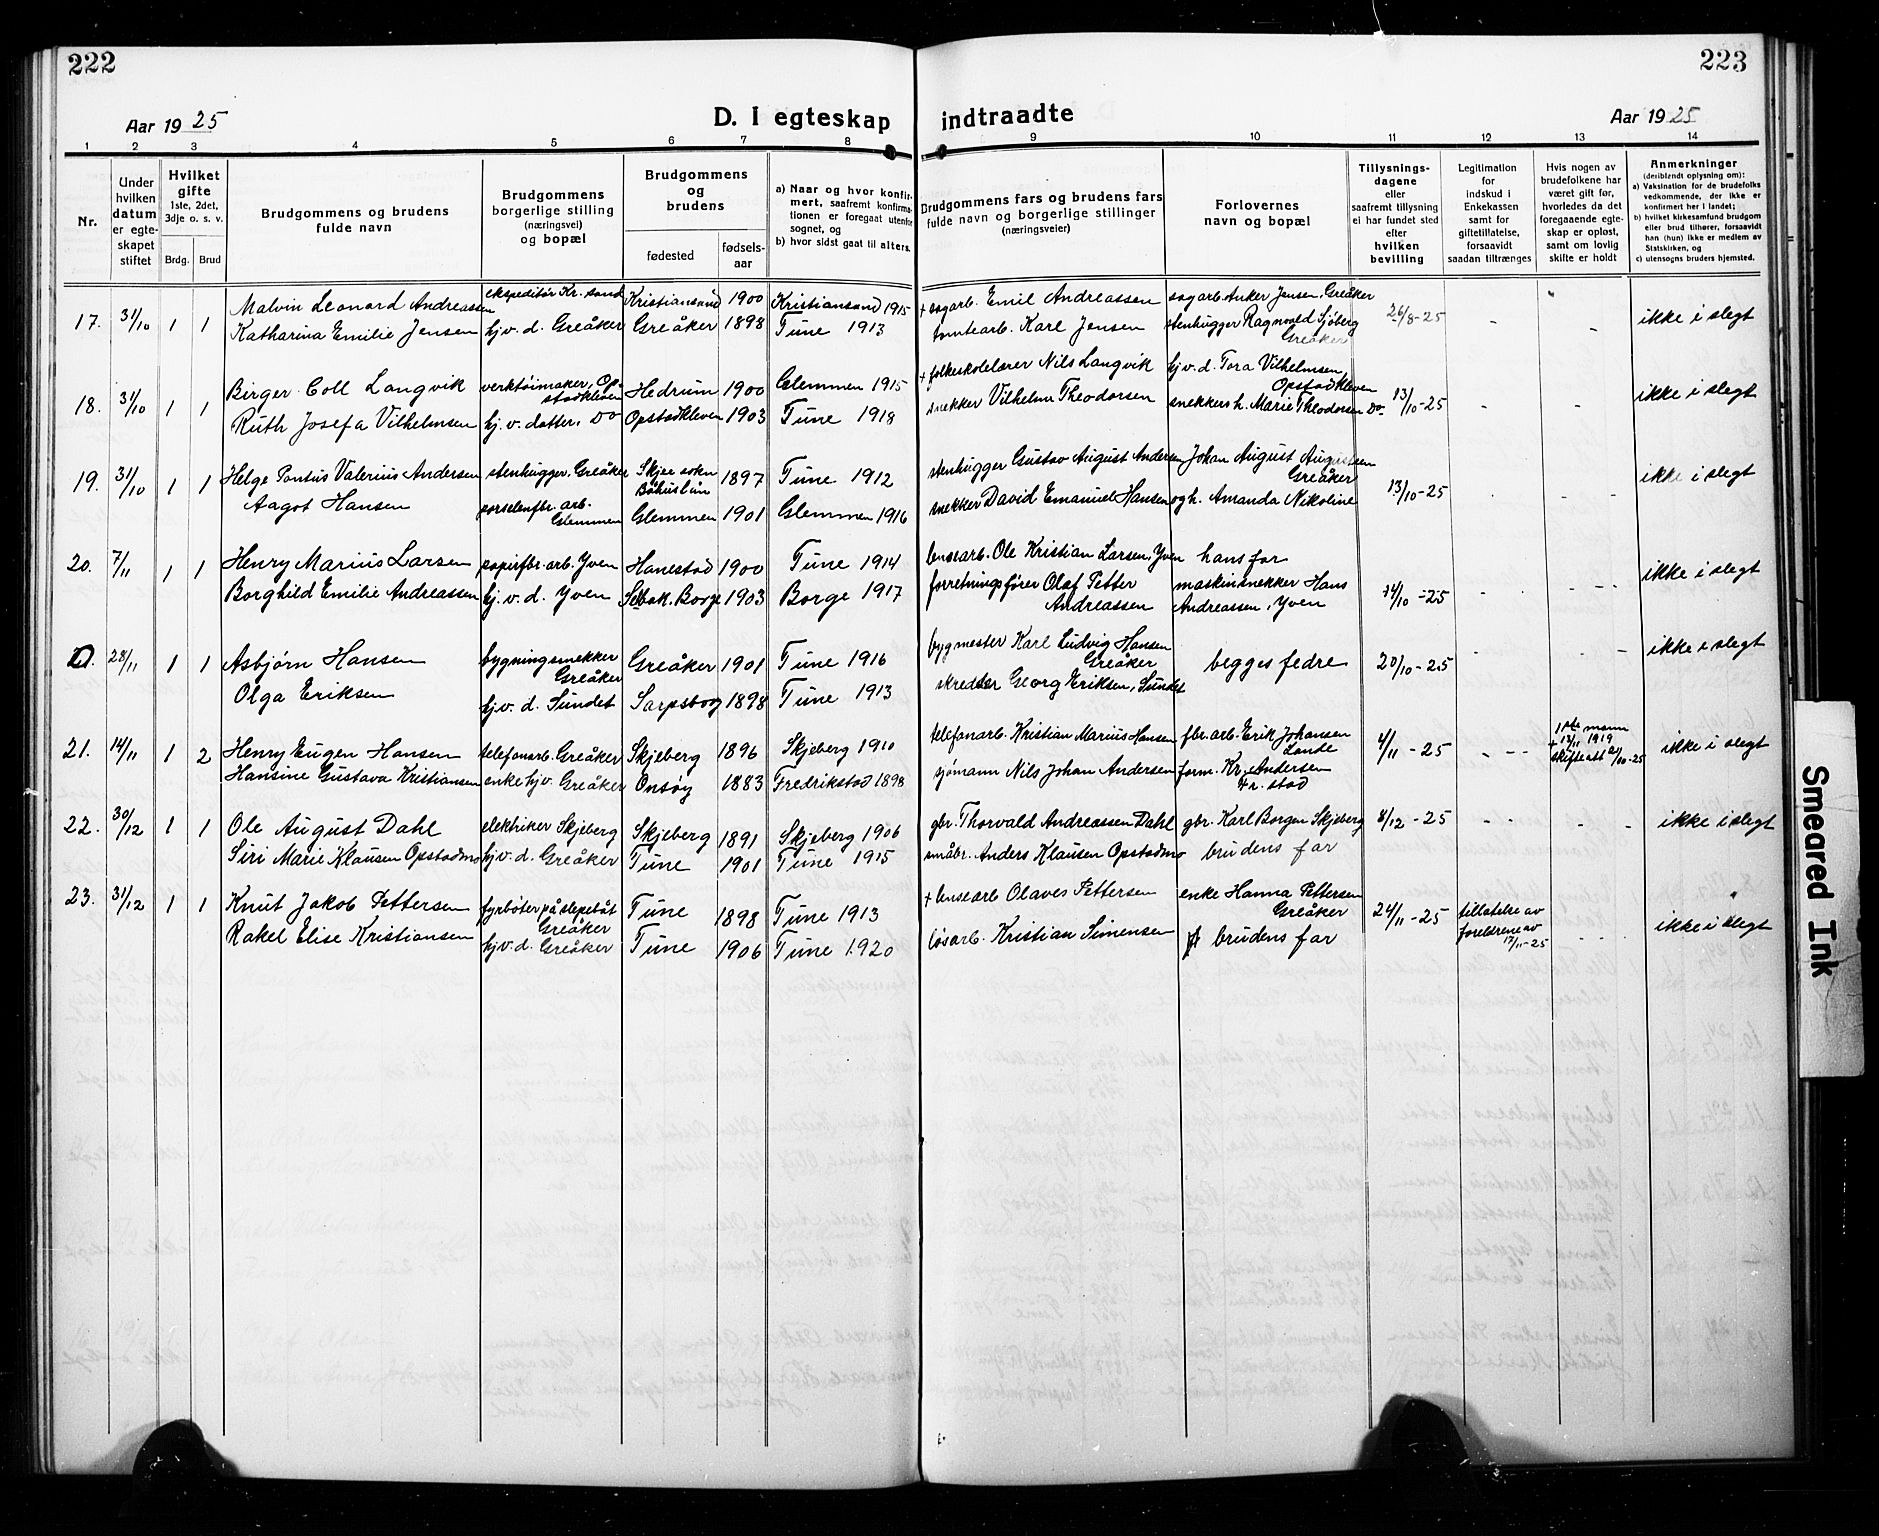 222
223
Aar 1925
D. I egteskap indtraadte
Aar 1925
1 2 3 4 5 6 7 8 9 10 11 12 13 14
Nr.
Under hvilken datum er egteskapet stiftet
Hvilket gifte 1ste, 2det, 3dje o. s. v.
Brdg. Brud
Brudgommens og brudens fulde navn
Brudgommens borgerlige stilling (næringsvei) og bopæl
Brudgommens og brudens
fødested
fødselsaar
a) Naar og hvor konfirmert, saafremt konfirmationen er foregaat utenfor sognet, og
b) hvor sidst gaat til alters.
Brudgommens fars og brudens fars fulde navn og borgerlige stillinger (næringsveier)
Forlovernes navn og bopæl
Tillysningsdagene eller saafremt tillysning ei har fundet sted efter hvilken bevilling
Legitimation for indskud i Enkekassen samt for giftetillatelse, forsaavidt saadan tiltrænges
Hvis nogen av brudefolkene har været gift før, hvorledes da det foregaaende egteskap er opløst, samt om lovlig skifte er holdt
Anmerkninger (deriblandt oplysning om):
a) Vaksination for de brudefolks vedkommende, der ikke er konfirmert her i landet;
b) hvilket kirkesamfund brudgom eller brud tilhører, forsaavidt han (hun) ikke er medlem av Statskirken, og
c) utensogns bruders hjemsted.
17. 31/10 1 1 Malvin Leonard Andreassen ekspeditør Kr. sand Kristiansand 1900 Kristiansand 1915 + sagarb. Emil Andreassen sagarb. Anker Jensen, Greåker 26/8-25 - - ikke i slegt
Katharina Emilie Jensen hj. v. d. Greåker Greåker 1898 Tune 1913 tomtearb. Karl Jensen stenhugger Ragnvald Sjøberg Greåker
18. 31/10 1 1 Birger Coll Langvik verktøimaker, Opstadkleven Hedrum 1900 Glemmen 1915 + folkeskolelærer Nils Langvik hj. v. d. Tora Vilhelmsen Opstadkleven 13/10-25 - - ikke i slegt
Ruth Josefa Vilhelmsen hj. v. datter, Do Opstadkleven 1903 Tune 1918 snekker Vilhelm Theodorsen snekkers h. Marie Theodorsen Do
19. 31/10 1 1 Helge Pontus Valerius Andersen stenhugger, Greåker Skjee sokn Bohuslän 1897 Tune 1912 stenhugger Gustav August Andersen Johan August Augustsen Greåker 13/10-25 - - ikke i slegt
Aagot Hansen porselenfbr. arb. Glemmen Glemmen 1901 Glemmen 1916 snekker David Emanuel Hansen og h. Amanda Nikoline
20. 7/11 1 1 Henry Marius Larsen papirfbr. arb. Yven Hanestad 1900 Tune 1914 lensearb. Ole Kristian Larsen, Yven hans far 14/10-25 - - ikke i slegt
Borghild Emilie Andreassen hj. v. d. Yven Selbak, Borge 1903 Borge 1917 forretningsfører Olaf Petter Andreassen maskinsnekker Hans Andreassen, Yven
28/11 1 1 Asbjørn Hansen bygningssnekker Greåker Greåker 1901 Tune 1916 bygmester Karl Ludvig Hansen Greåker begges fedre 20/10-25 - - ikke i slegt
Olga Eriksen hj. v. d. Sundet Sarpsborg 1898 Tune 1913 skredder Georg Eriksen, Sundet
21. 14/11 1 2 Henry Eugen Hansen telefonarb. Greåker Skjeberg 1896 Skjeberg 1910 telefonarb. Kristian Marius Hansen fbr. arb. Erik Johansen Lande 4/11-25 - - 1ste mann + 12/11 1919 skifteatt 2/10-25 ikke i slegt
Hansine Gustava Kristiansen enke hj v. Greåker Onsøy 1883 Fredrikstad 1898 sjømann Nils Johan Andersen form. Kr. Andersen Fr. stad
22. 30/12 1 1 Ole August Dahl elektriker Skjeberg Skjeberg 1891 Skjeberg 1906 gbr. Thorvald Andreassen Dahl gbr. Karl Borgen Skjeberg 8/12-25 - - ikke i slegt
Siri Marie Klausen Opstadmo hj v. d. Greåker Tune 1901 Tune 1915 småbr. Anders Klausen Opstadmo brudens far
23. 31/12 1 1 Knut Jakob Pettersen fyrbøter på slepebåt Greåker Tune 1898 Tune 1913 + lensearb Olaves Pettersen enke Hanna Pettersen Greåker 24/11-25 tillatelse av foreldrene av 17/11-25 - ikke i slegt
Rakel Elise Kristiansen hj v. d. Greåker Tune 1906 Tune 1920 løsarb. Kristian Simensen brudens far
Smeared Ink